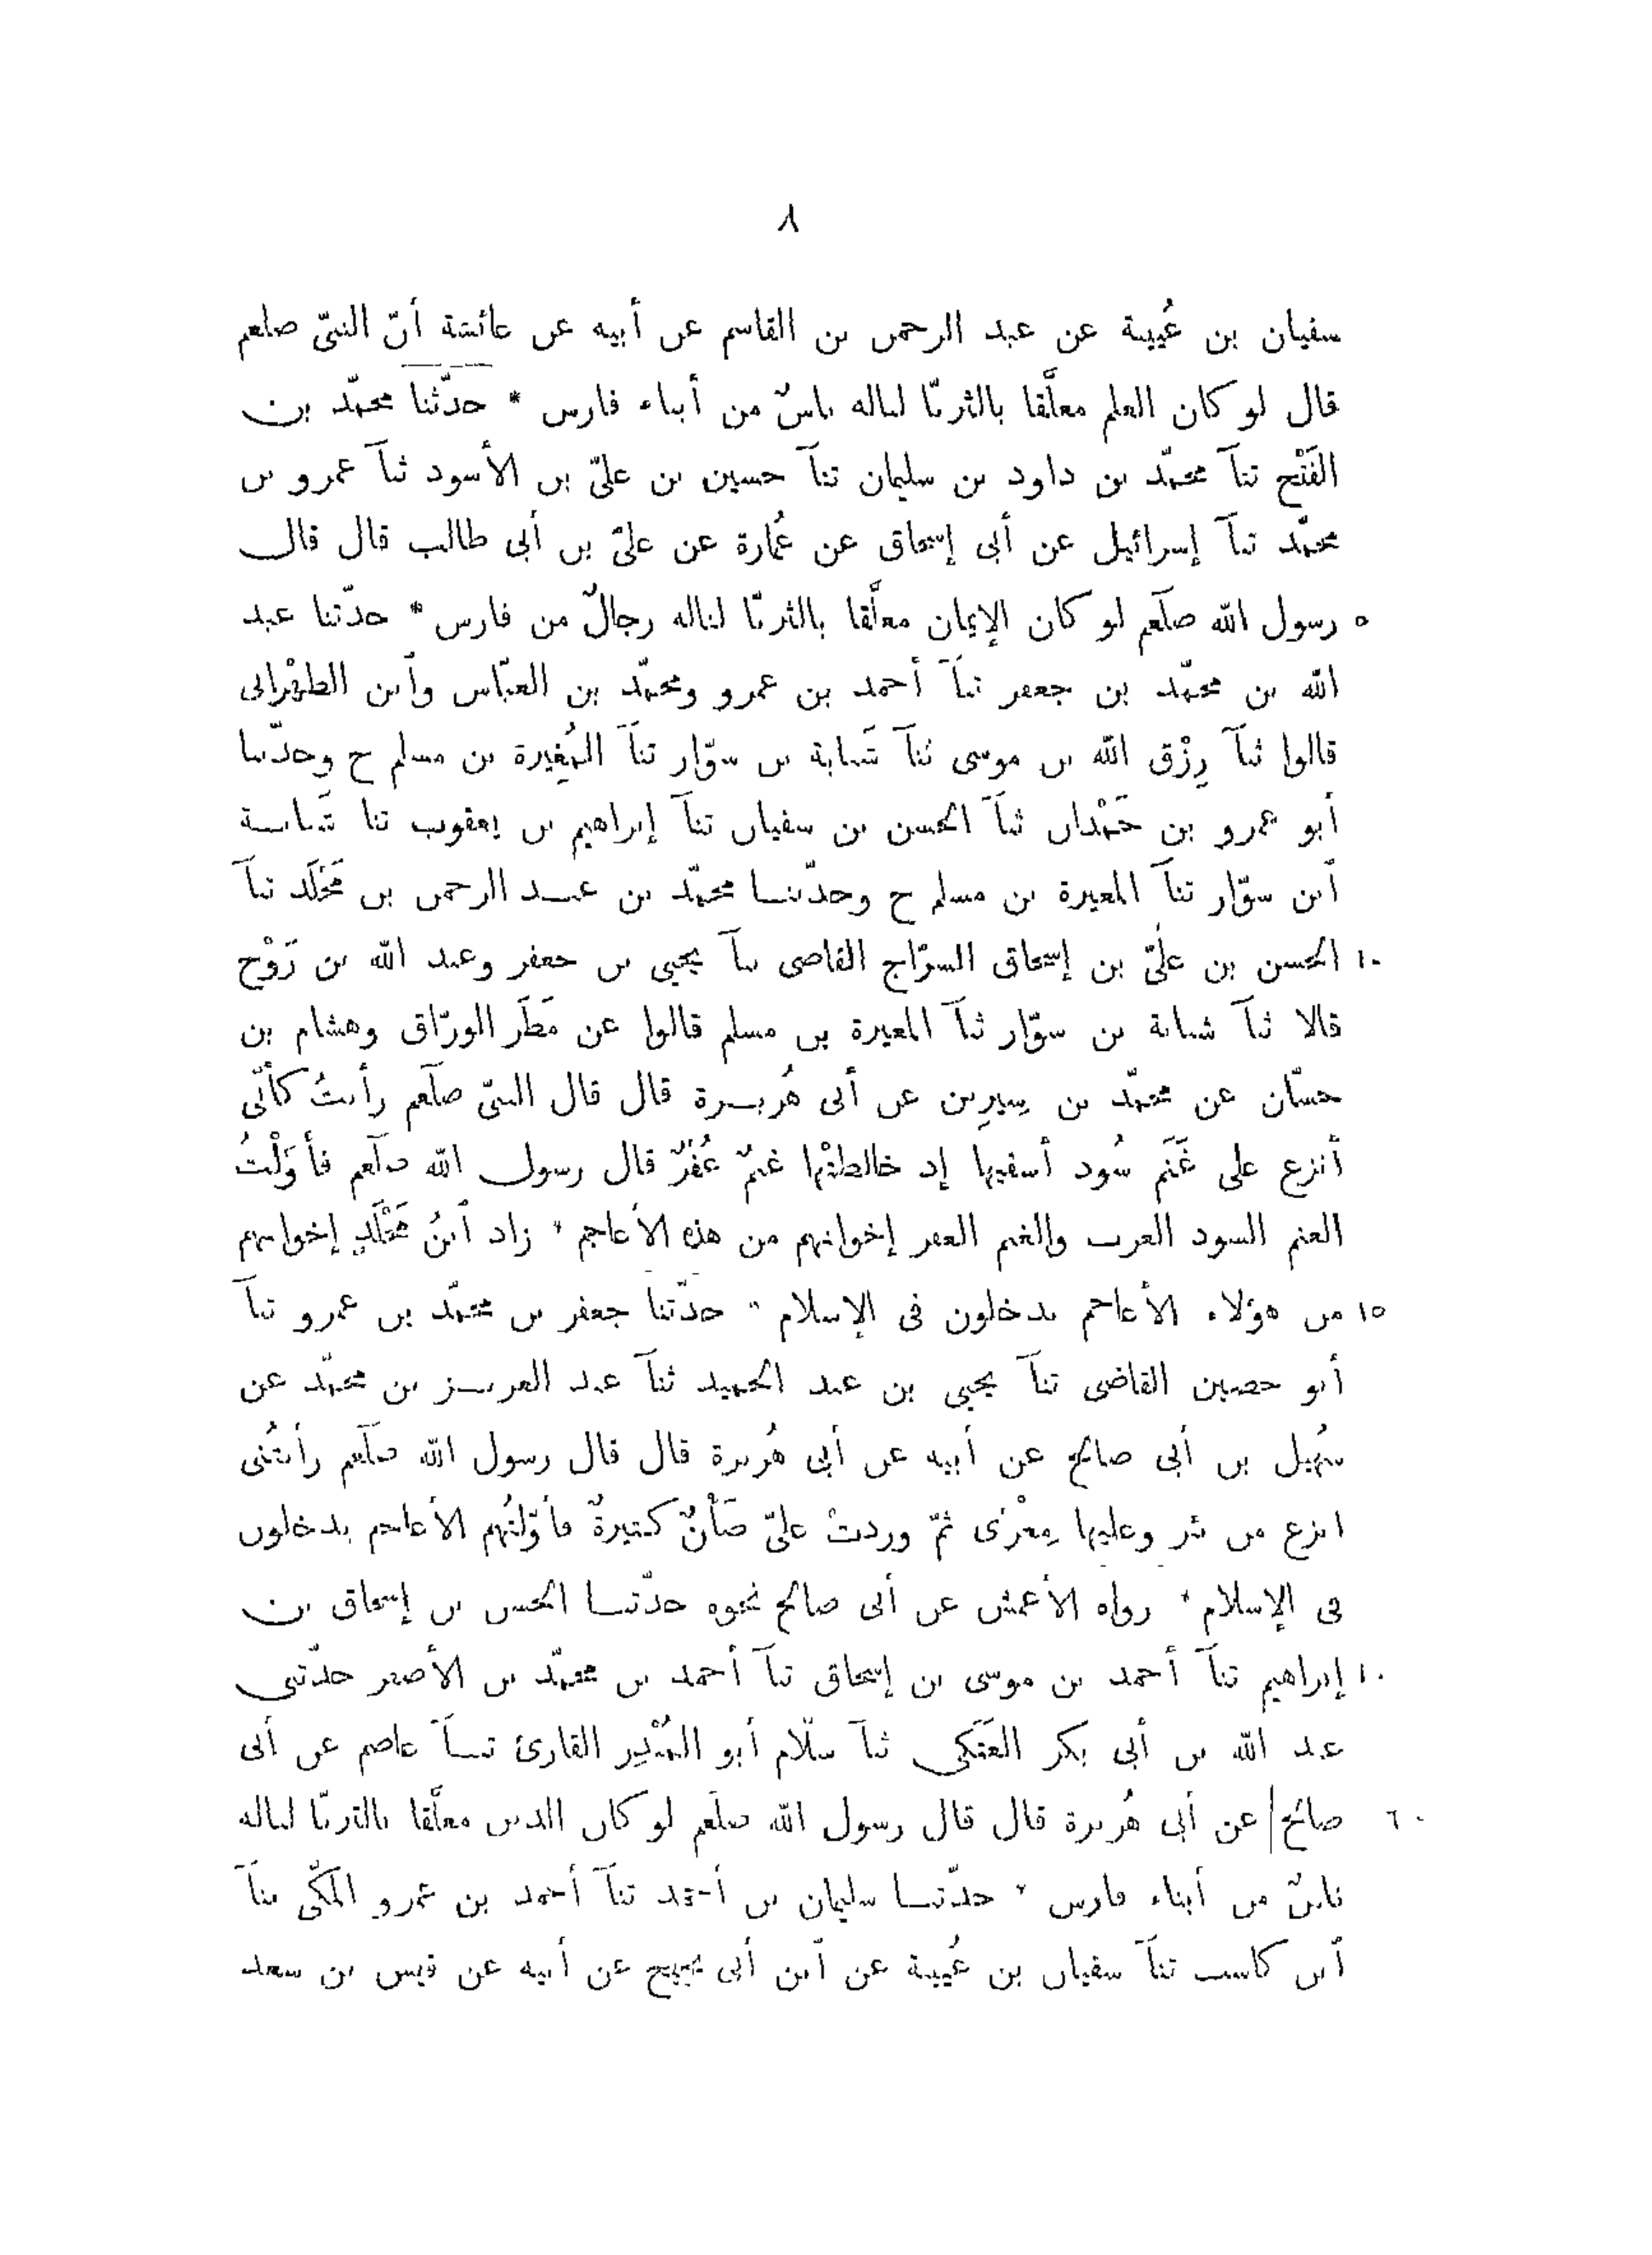 ٨
سفيان بن عُيينة عن عبد الرحمن بن القاسم عن أبيه عن عائشة أنّ النبىّ صلعم
قال لو كان العلم معلَّقا بالثريّا لناله ناسٌ من أبناء فارس * حدّثنا محمّد بن
الفَتْح ثنآ محمّد بن داود بن سليمان ثنآ حسين بن علىّ بن الأسود ثنآ عمرو بن
محمّد ثنآ إسرائيل عن أبى إسحاق عن عُمارة عن علىّ بن أبى طالب قال قال
٥ رسول الله صلعم لو كان الإيمان معلَّقا بالثريّا لناله رجالٌ من فارس * حدّثنا عبد
الله بن محمّد بن جعفر ثنآ أحمد بن عمرو ومحمّد بن العبّاس وآبن الطهْرانى
قالوا ثنآ رِزْق الله بن موسى ثنآ شَبابة بن سوّار ثنآ المُغِيرة بن مسلم ح وحدّثنا
أبو عمرو بن حَمْدان ثنآ الحسن بن سفيان ثنآ إبراهيم بن يعقوب ثنا شَبابة
آبن سوّار ثنآ المغيرة بن مسلم ح وحدّثنا محمّد بن عبد الرحمن بن مَخْلَد ثنآ
١٠ الحسن بن علىّ بن إسحاق السرّاج القاضى ثنآ يحيى بن جعفر وعبد الله بن رَوْح
قالا ثنآ شبابة بن سوّار ثنآ المغيرة بن مسلم قالوا عن مَطَر الورّاق وهشام بن
حسّان عن محمّد بن سِيرِين عن أبى هُريرة قال قال النبىّ صلعم رأيتُ كأنّى
أنزع على غَنَم سُود أسقيها إذ خالطتْها غنمٌ عُفْرٌ قال رسول الله صلعم فأوَلْتُ
الغنم السود العرب والغنم العفر إخوانهم من هذه الأعاجم * زاد آبنُ مَخْلَدٍ إخوانهم
١٥ من هؤلاء الأعاجم يدخلون فى الإسلام * حدّثنا جعفر بن محمّد بن عمرو ثنآ
أبو حصين القاضى ثنآ يحيى بن عبد الحميد ثنآ عبد العزيز بن محمّد عن
سُهيل بن أبى صالح عن أبيه عن أبى هُريرة قال قال رسول الله صلعم رأيتُنى
انزع من بئر وعليها مِعْزًى ثمّ وردتْ علىّ ضَأْنٌ كثيرةٌ فأوّلتُهم الأعاجم يدخلون
فى الإسلام * رواه الأعمش عن أبى صالح نحوه حدّثنا الحسن بن إسحاق بن
٢٠ إبراهيم ثنآ أحمد بن موسى بن إسحاق ثنآ أحمد بن محمّد بن الأصفر حدّثنى
عبد الله بن أبى بكر العَتَكى ثنآ سلّام أبو المُنْذِر القارئ ثنآ عاصم عن أبى
٦٠ صالح|عن أبى هُريرة قال قال رسول الله صلعم لو كان الدين معلَّقا بالثريّا لناله
ناسٌ من أبناء فارس * حدّثنا سليمان بن أحمد ثنآ أحمد بن عمرو المكّى ثنآ
آبن كاسب ثنآ سفيان بن عُيينة عن آبن أبى نجيح عن أبيه عن قيس بن سعد